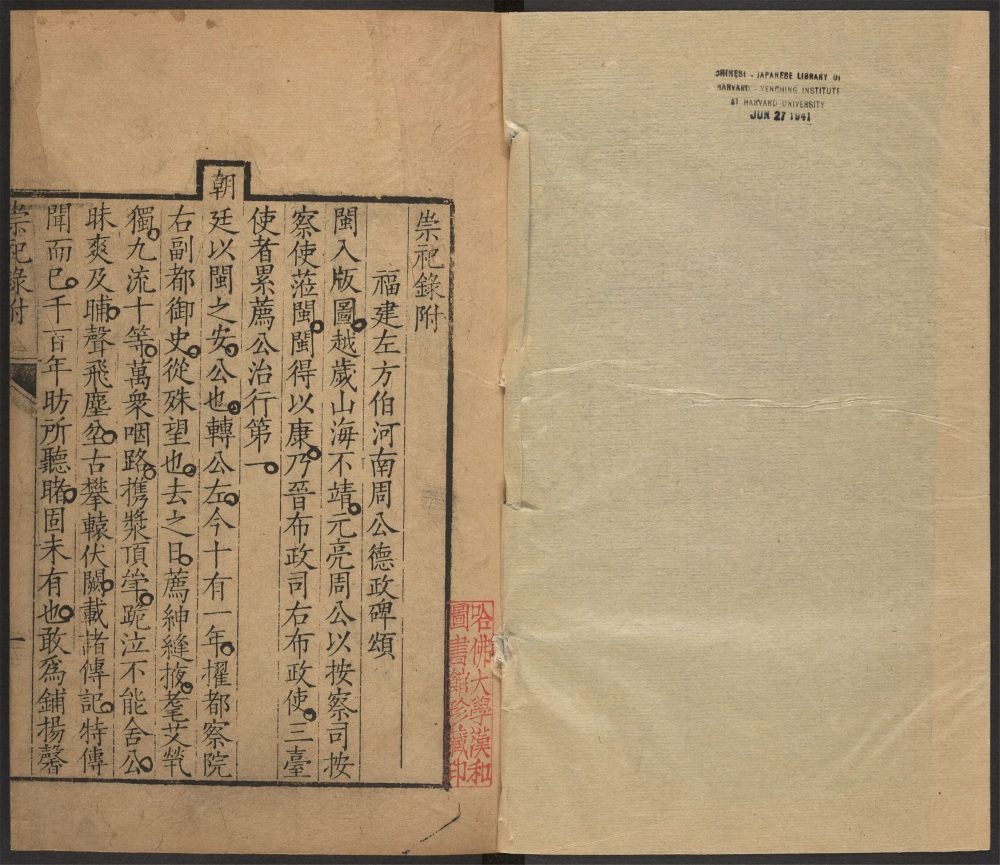 崇祀錄附
福建左方伯河南周公德政碑頌
閩入版圖。越歲山海不靖。元亮周公以按察司按
察使蒞閩。閩得以康。乃晉布政司右布政使。三臺
使者累薦公治行第一。
朝
廷以閩之安。公也。轉公左。今十有一年。擢都察院
右副都御史。從殊望也。去之日。薦紳縫掖。耄艾煢
獨。九流十等。萬衆咽路。攜漿頂㷀。跪泣不能舍公。
昧爽及晡。聲飛塵坌。古攀轅伏闕。載諸傳記。特傳
聞而已。千百年昉所聽睹。固未有也。敢爲鋪揚馨
崇祀錄附
一
哈佛大學漢和
圖書館珍藏印
CHINESE - JAPANESE LIBRARY OF
HARVARD - YENCHING INSTITUTE
AT HARVARD UNIVERSITY
JUN 27 1941